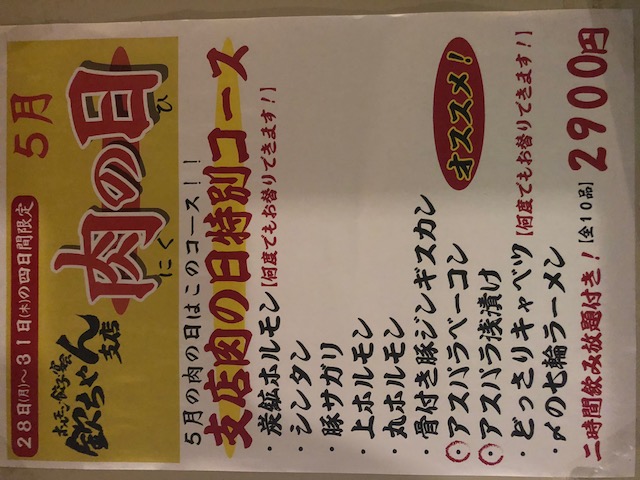 28日(月)～31日(木)の四日間限定
5月
肉の日
にく ひ
ホルモン・餃子・宴会
欽ちゃん
支店
5月の肉の日はこのコース！！
支店肉の日特別コース
・炭鉱ホルモン【何度でもお替りできます！】
・シンタン
・豚サガリ
・上ホルモン
・丸ホルモン
・骨付き豚ジンギスカン
◎アスパラベーコン
◎アスパラ浅漬け
オススメ！
・どっさりキャベツ【何度でもお替りできます！】
・〆の七輪ラーメン
二時間飲み放題付き！【全10品】2900円